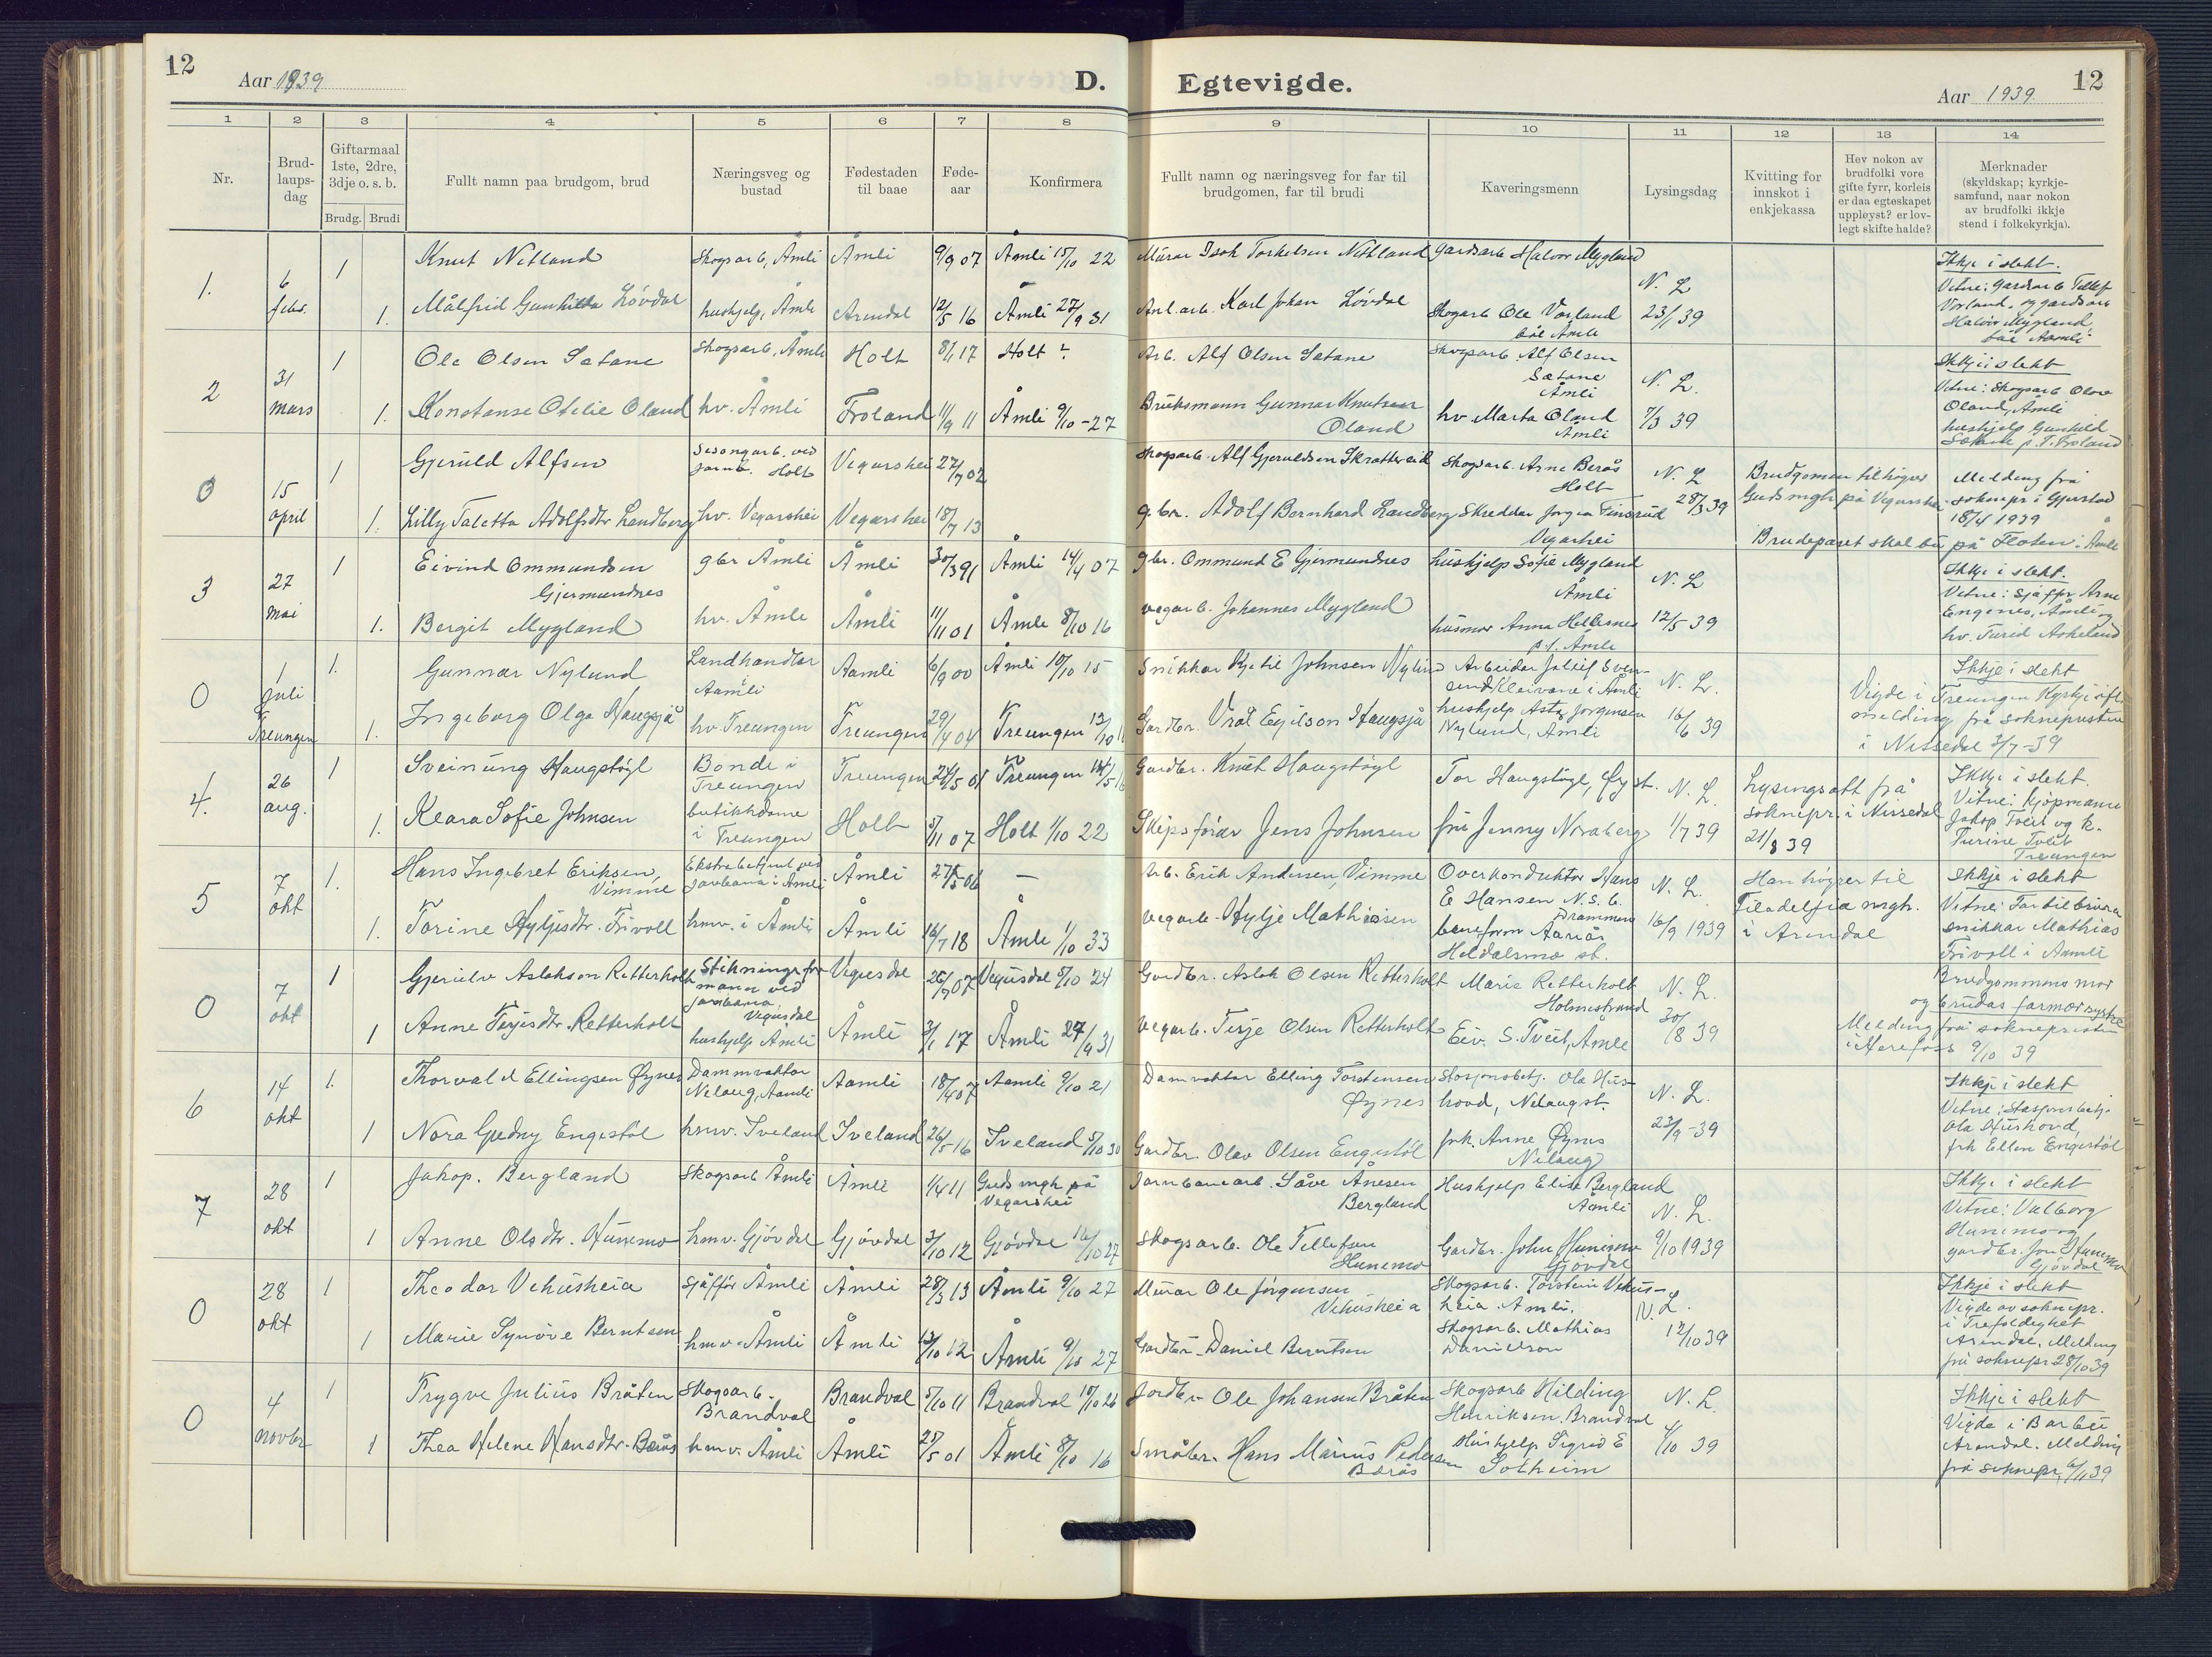 12
Aar 1939
D.
Egtevigde.
Aar 1939
12
1 2 3 4 5 6 7 8 9 10 11 12 13 14
Nr.
Brud-
laups-
dag
Giftarmaal
1ste, 2dre,
3dje o. s. b.
Brudg. Brudi
Fullt namn paa brudgom, brud
Næringsveg og
bustad
Fødestaden
til baae
Føde-
aar
Konfirmera
Fullt namn og næringsveg for far til
brudgomen, far til brudi
Kaveringsmenn
Lysingsdag
Kvitting for
innskot i
enkjekassa
Hev nokon av
brudfolki vore
gifte fyrr, korleis
er daa egteskapet
uppløyst? er lov-
legt skifte halde?
Merknader
(skyldskap; kyrkje-
samfund, naar nokon
av brudfolki ikkje
stend i folkekyrkja).
1. 6 febr.
1 Knut Nilland Skogsarb, Åmli Åmli 9/9 07 Åmli 15/10 22
Murar Isak Torkelsen Nilland Gardsarb Halvor Mygland
1. Målfrid Gunhilda Lövdal hushjelp, Åmli Arendal 12/5 16 Åmli 27/9 31
Anl.arb. Karl Johan Lövdal Skogarb Ole Vorland
båe Åmli
N. L. 23/1 39
Ikkje i slekt.
Vitne: Gardsarb Tellef
Vorland, og gardsarb
Halvor Mygland,
båe Åmli
2 31 mars
1 Ole Olsen Sætane Skogsarb, Åmli Holt 8/1 17 Holt ?
Arb. Alf Olsen Sætane Skogsarb. Alf Olsen
Sætane
Åmli
1. Konstanse Otelie Oland hv. Åmli Froland 11/9 11 Åmli 9/10-27
Bruksmann Gunnar Knutsen
Oland
hv. Marta Oland
Åmli
N. L. 7/3 39
Ikkje i slekt
Vitne: Skogsarb Olav
Oland, Åmli
hushjelp Gunhild
Sætane p.t. Froland
0 15 april
1 Gjeruld Alfsen Sesongarb. ved
Jarnb. Holt Vegarshei 27/7 02
Skogsarb. Alf Gjeruldsen Skrattereid Skogsarb. Arne Berås
Holt
1. Lilly Taletta Adolfsdtr Landberg hv. Vegarshei Vegarshei 18/7 13
g.br. Adolf Bernhard Landberg Skreddar Jørgen Tinsrud
Vegarshei
N. L. 28/3 39
Brudgomen tilhöyrer
Guds mgh på Vegarshei.
Brudeparet skal bu på Floten i Åmli
Melding frå
soknepr i Gjerstad
18/4 1939
3 27 mai
1 Eivind Ommundsen
Gjermundnes
gbr Åmli Åmli 30/3 91 Åmli 14/4 07
gbr. Ommund E Gjermundnes hushjelp Sofie Mygland
Åmli
1. Bergit Mygland hv. Åmli Åmli 11/11 01 Åmli 8/10 16
vegarb. Johannes Mygland husmor Anna Hellesnes
p.t. Åmli
N. L. 12/5 39
Ikkje i slekt.
Vitne: Sjåfør Arne
Engenes, Åmli, og
hv. Turid Askeland
0 1 juli Treungen
1. Gunnar Nylund Landhandlar
Aamli Aamli 6/9 00 Åmli 10/10 15
Snikkar Kjetil Johnsen Nylund Arbeidar Jalleif Sven-
send Kleivane i Åmli
1. Ingeborg Olga Haugsjå hv Treungen Treungen 29/4 04 Treungen
Gardbr. Vråt Egilson Haugsjå hushjelp Asta Jørgensen
Nylund, Åmli
N. L. 16/6 39
Ikkje i slekt
Vigde i Treungen Kyrkje ifl
melding frå sokneprsten
i Nissedal 3/7-39
4. 26 aug.
1 Sveinung Haugstöyl Bonde i
Treungen Treungen 24/5 01 Treungen
Gardbr. Knut Haugstöyl Tor Haugstöyl, Öy st.
1. Klara Sofie Johnsen butikkdame
i Treungen Holt 5/11 07 Holt 1/10 22
Skipsförar Jens Johnsen fru Jenny Noraberg
N. L. 1/7 39
Lysingsatt frå
soknepr. i Nissedal
21/8 39
Ikkje i slekt.
Vitne: Kjöpmann
Jakop Tveit og k.
Turine Tveit
Treungen
5 7 okt
1. Hans Ingebret Eriksen,
Vimme
Ekstrabetjent ved
Jarnbana i Åmli Åmli 27/5 06 —
Arb. Erik Andersen Vimme Overkonduktör Hans
E Hansen N.S.B.
Drammen
1. Torine Hyljesdtr. Trivoll hmv. i Åmli Åmli 16/7 18 Åmli 1/10 33
Vegarb. Hylje Mathisen baneform Aarås
Heldalsmo st.
N. L. 16/9 1939
Han höyrer til
Filadelfia mgh.
i Arendal
Ikkje i slekt
Vitne: Far til brura
snikkar Mathias
Trivoll i Aamli
0 7 okt
1 Gjerulv Aslakson Retterholt Stikningsfor
mann ved
jarnbana.
Vegusdal Vegusdal 26/7 07 Vegusdal 8/10 24
Gardbr. Aslak Olsen Retterholt Marie Retterholt
Holmestrand
1 Anne Terjesdtr. Retterholt hushjelp Åmli Åmli 3/1 17 Åmli 27/9 31
Vegarb. Terje Olsen Retterholt Eiv. S. Tveit, Åmli
N. L. 30/8 39
Brudgommens mor
og brudas farmor systre
Melding frå sokneprsten
i Herefoss 9/10 39
6 14 okt
1. Thorvald Ellingsen Öynes Damvaktar
Nelaug, Aamli Aamli 18/4 07 Aamli 9/10 21
Damvaktar Elling Torstensen
Öynes
Stasjonsbetj. Ola Hus-
hovd, Nelaug st.
1 Nora Gudny Engestöl hmv. Iveland Iveland 26/5 16 Iveland 5/10 30
Gardbr. Olav Olsen Engestöl frk. Anne Öynes
Nelaug
N. L. 23/9-39
Ikkje i slekt
Vitne: Stasjonsbetj.
Ola Hushovd,
frk Ellen Engestöl
7 28 okt
1 Jakop. Bergland Skogsarb Åmli Åmli 1/4 11 Guds mgh på
Vegarshei
Jarnbanearb. Såve Ånesen
Bergland
Hushjelp Elise Bergland
Åmli
1 Anne Olsdtr. Hunemo hmv. Gjövdal Gjövdal 3/10 12 Gjövdal 16/10 27
Skogsarb. Ole Tellefsen
Hunemo
Gardbr. John Hunemo
Gjövdal
N. L. 9/10 1939
Ikkje i slekt
Vitne: Valborg
Hunemo og
gardbr. Jon Hunemo
Gjövdal
0 28 okt
1 Theodor Vehusheia Sjåfför Åmli Åmli 28/3 13 Åmli 9/10 27
Murar Ole Jörgensen
Vehusheia
Skogsarb. Torstein Vehus-
heia. Åmli.
1 Marie Synöve Berntsen hmv. Åmli Åmli 13/10 12 Åmli 9/10 27
Gardbr. Daniel Berntsen Skogsarb. Mathias
Danielson
N. L. 12/10 39
Ikkje i slekt
Vigde av soknepr.
i Trefoldighet
Arendal. Melding
frå soknepr 28/10 39
0 4 novbr
1 Trygve Julius Bråten Skogsarb.
Brandval Brandval 5/10 11 Brandval 10/10 26
Jordbr. Ole Johansen Bråten Skogsarb Hilding
Henriksen. Brandval
1 Thea Helene Hansdtr. Berås hmv. Åmli Åmli 25/5 01 Åmli 8/10 16
Småbr. Hans Marius Pedersen
Berås
Hushjelp Sigrid E
Solheim
N. L. 4/10 39
Ikkje i slekt
Vigde i Barbu
Arendal. Melding
frå soknepr. 6/11 39